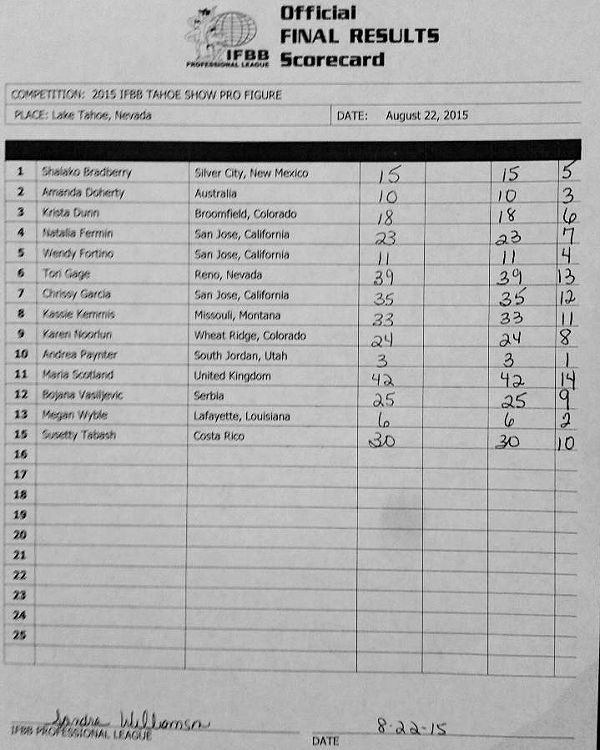 Official
FINAL RESULTS
Scorecard
IFBB
PROFESSIONAL LEAGUE
COMPETITION: 2015 IFBB TAHOE SHOW PRO FIGURE
PLACE: Lake Tahoe, Nevada DATE: August 22, 2015
1 Shalako Bradberry Silver City, New Mexico 15 15 5
2 Amanda Doherty Australia 10 10 3
3 Krista Dunn Broomfield, Colorado 18 18 6
4 Natalia Fermin San Jose, California 23 23 7
5 Wendy Fortino San Jose, California 11 11 4
6 Tori Gage Reno, Nevada 39 39 13
7 Chrissy Garcia San Jose, California 35 35 12
8 Kassie Kemmis Missouli, Montana 33 33 11
9 Karen Noorlun Wheat Ridge, Colorado 24 24 8
10 Andrea Paynter South Jordan, Utah 3 3 1
11 Maria Scotland United Kingdom 42 42 14
12 Bojana Vasiljevic Serbia 25 25 9
13 Megan Wyble Lafayette, Louisiana 6 6 2
15 Susetty Tabash Costa Rico 30 30 10
16
17
18
19
20
21
22
23
24
25
Sandra Williamson 8-22-15
IFBB PROFESSIONAL LEAGUE DATE